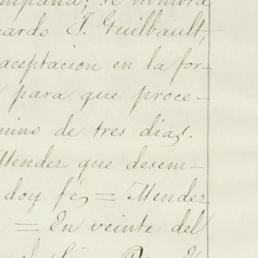 se nombra
J. Guilbault,
aceptacion en la for-
para que proce-
de tres dias.
Mendez que desem-
doy fé, = Mendez
= En veinte del